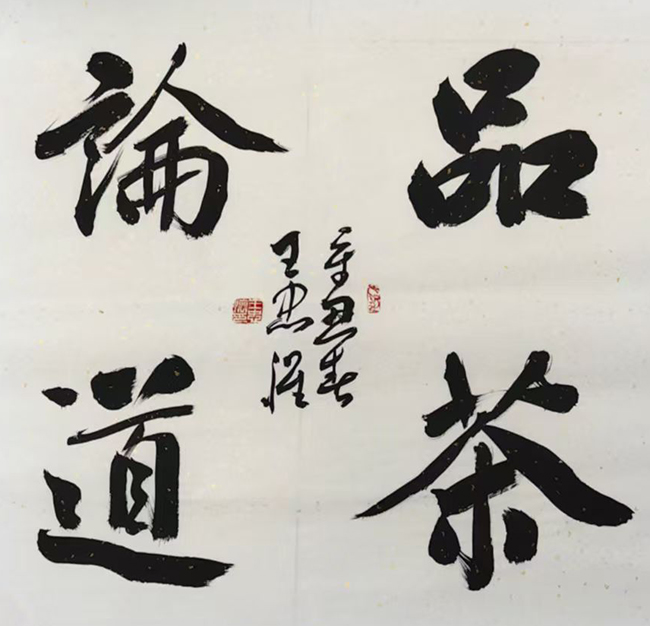 品茶
論道
辛丑春
王忠耀